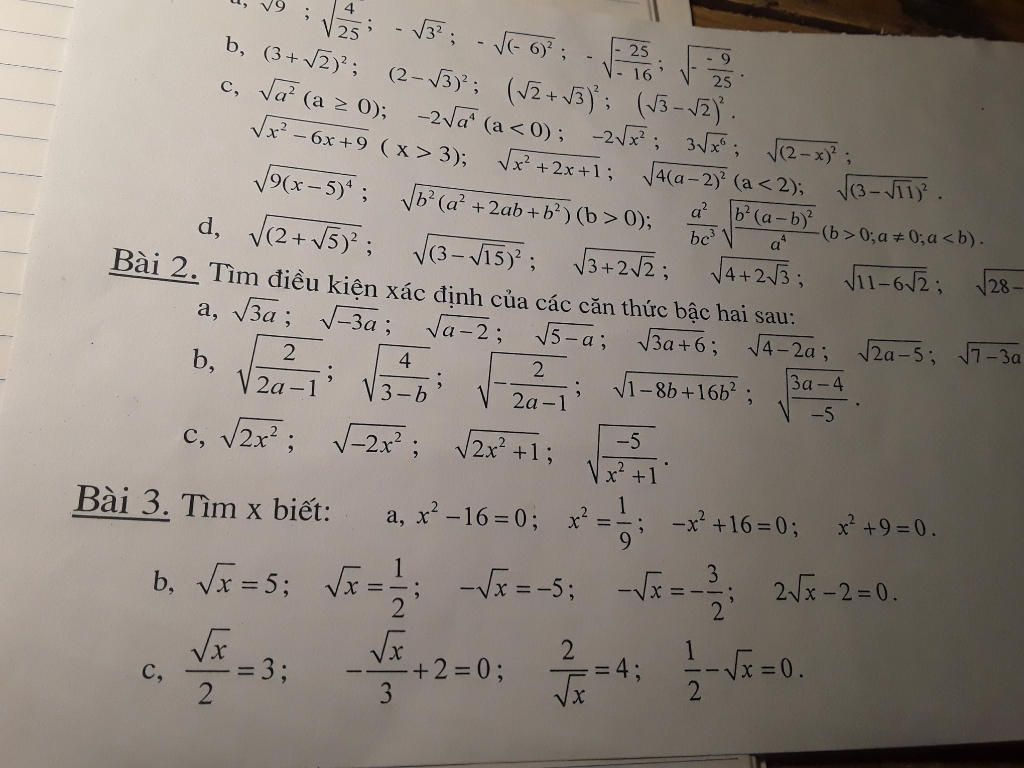 a, √9 ; √(4/25) ; - √(3²) ; - √((- 6)²) ; - √((- 25)/(- 16)) ; √(- (- 9)/25) .
b, (3 + √2)² ; (2 − √3)² ; (√2 + √3)² ; (√3 − √2)² .
c, √(a²) (a ≥ 0); −2√(a⁴) (a < 0) ; −2√(x²) ; 3√(x⁶) ; √((2 − x)²) ;
√(x² − 6x + 9) ( x > 3); √(x² + 2x + 1) ; √(4(a − 2)²) (a < 2); √((3 − √11)²) .
√(9(x − 5)⁴) ; √(b²(a² + 2ab + b²)) (b > 0); a²/(bc³) √((b²(a − b)²)/a⁴) (b > 0; a ≠ 0; a < b) .
d, √((2 + √5)²) ; √((3 − √15)²) ; √(3 + 2√2) ; √(4 + 2√3) ; √(11 − 6√2) ; √(28 −
Bài 2. Tìm điều kiện xác định của các căn thức bậc hai sau:
a, √(3a) ; √(−3a) ; √(a − 2) ; √(5 − a) ; √(3a + 6) ; √(4 − 2a) ; √(2a − 5) ; √(7 − 3a
b, √(2/(2a − 1)) ; √(4/(3 − b)) ; √(−2/(2a − 1)) ; √(1 − 8b + 16b²) ; √((3a − 4)/(−5)) .
c, √(2x²) ; √(−2x²) ; √(2x² + 1) ; √((−5)/(x² + 1)) .
Bài 3. Tìm x biết: a, x² − 16 = 0 ; x² = 1/9 ; −x² + 16 = 0 ; x² + 9 = 0 .
b, √x = 5 ; √x = 1/2 ; −√x = −5 ; −√x = −3/2 ; 2√x − 2 = 0 .
c, √x/2 = 3 ; −√x/3 + 2 = 0 ; 2/√x = 4 ; 1/2 − √x = 0 .